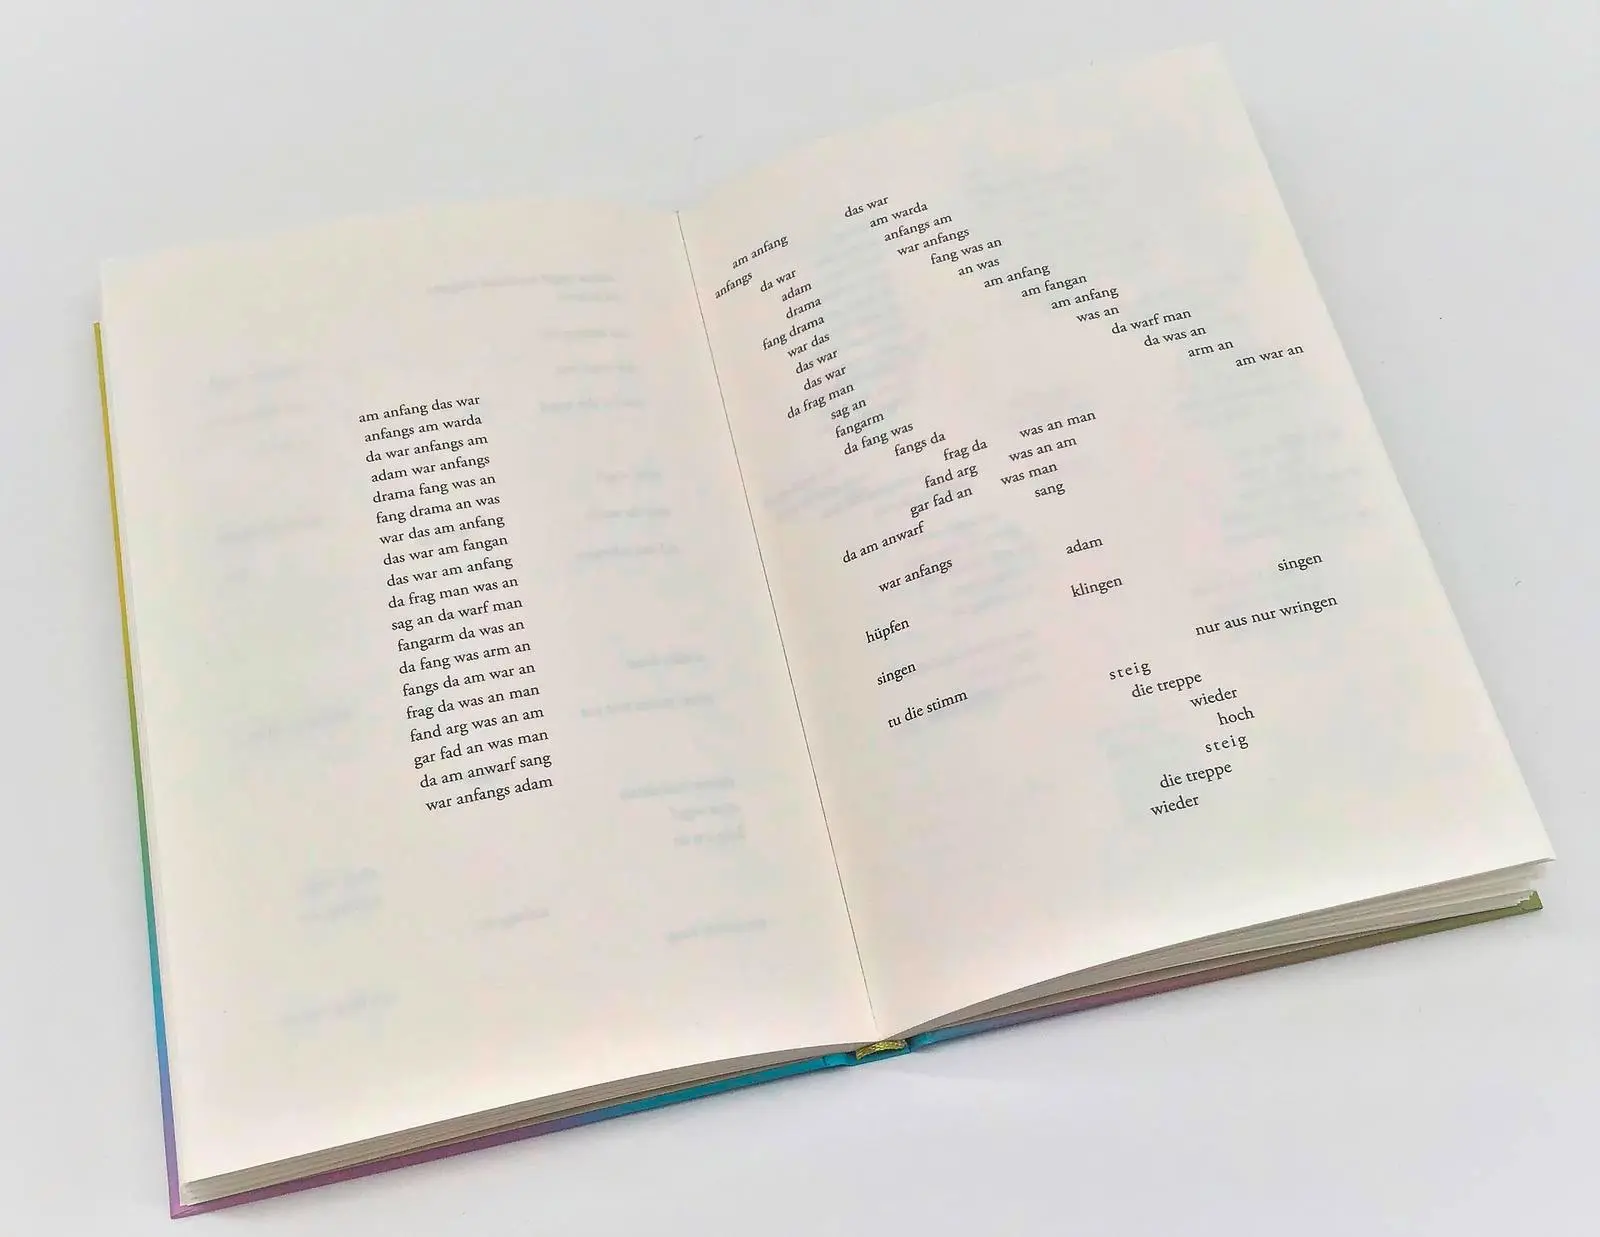 am anfang das war
anfangs am warda
da war anfangs am
adam war anfangs
drama fang was an
fang drama an was
war das am anfang
das war am fangan
das war am anfang
da frag man was an
sag an da warf man
fangarm da was an
da fang was arm an
fangs da am war an
frag da was an man
fand arg was an am
gar fad an was man
da am anwarf sang
war anfangs adam
das war
am warda
am anfang
anfangs am
anfangs
da war
war anfangs
adam
fang was an
drama
an was
fang drama
am anfang
war das
am fangan
das war
am anfang
das war
was an
da frag man
da warf man
sag an
da was an
fangarm
arm an
da fang was
am war an
fangs da
was an man
frag da
was an am
fand arg
was man
gar fad an
sang
da am anwarf
adam
war anfangs
klingen
singen
hüpfen
nur aus nur wringen
singen
steig
die treppe
tu die stimm
wieder
hoch
steig
die treppe
wieder